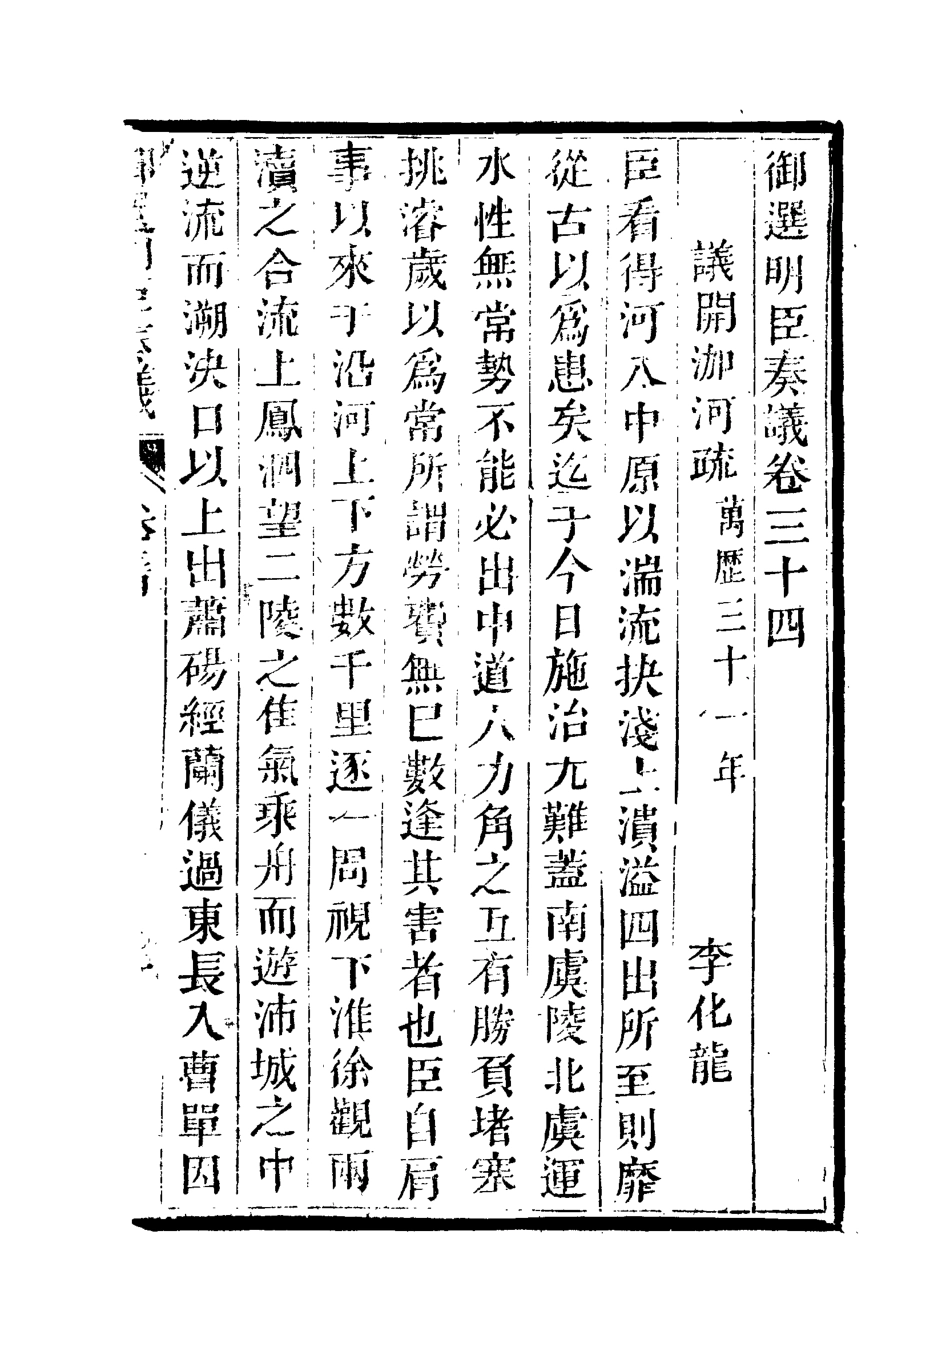 御選明臣奏議卷三十四
議開泇河疏萬歷三十一年 李化龍
臣看得河入中原以湍流抉淺土潰溢四出所至則靡
從古以爲患矣迄于今日施治尤難蓋南虞陵北虞運
水性無常勢不能必出中道人力角之互有勝負堵塞
挑濬歲以爲常所謂勞費無已數逢其害者也臣自肩
事以來于沿河上下方數千里逐一周視下淮徐觀兩
瀆之合流上鳳泗望二陵之佳氣乘舟而遊沛城之中
逆流而溯決口以上出蕭碭經蘭儀過東長入曹單因